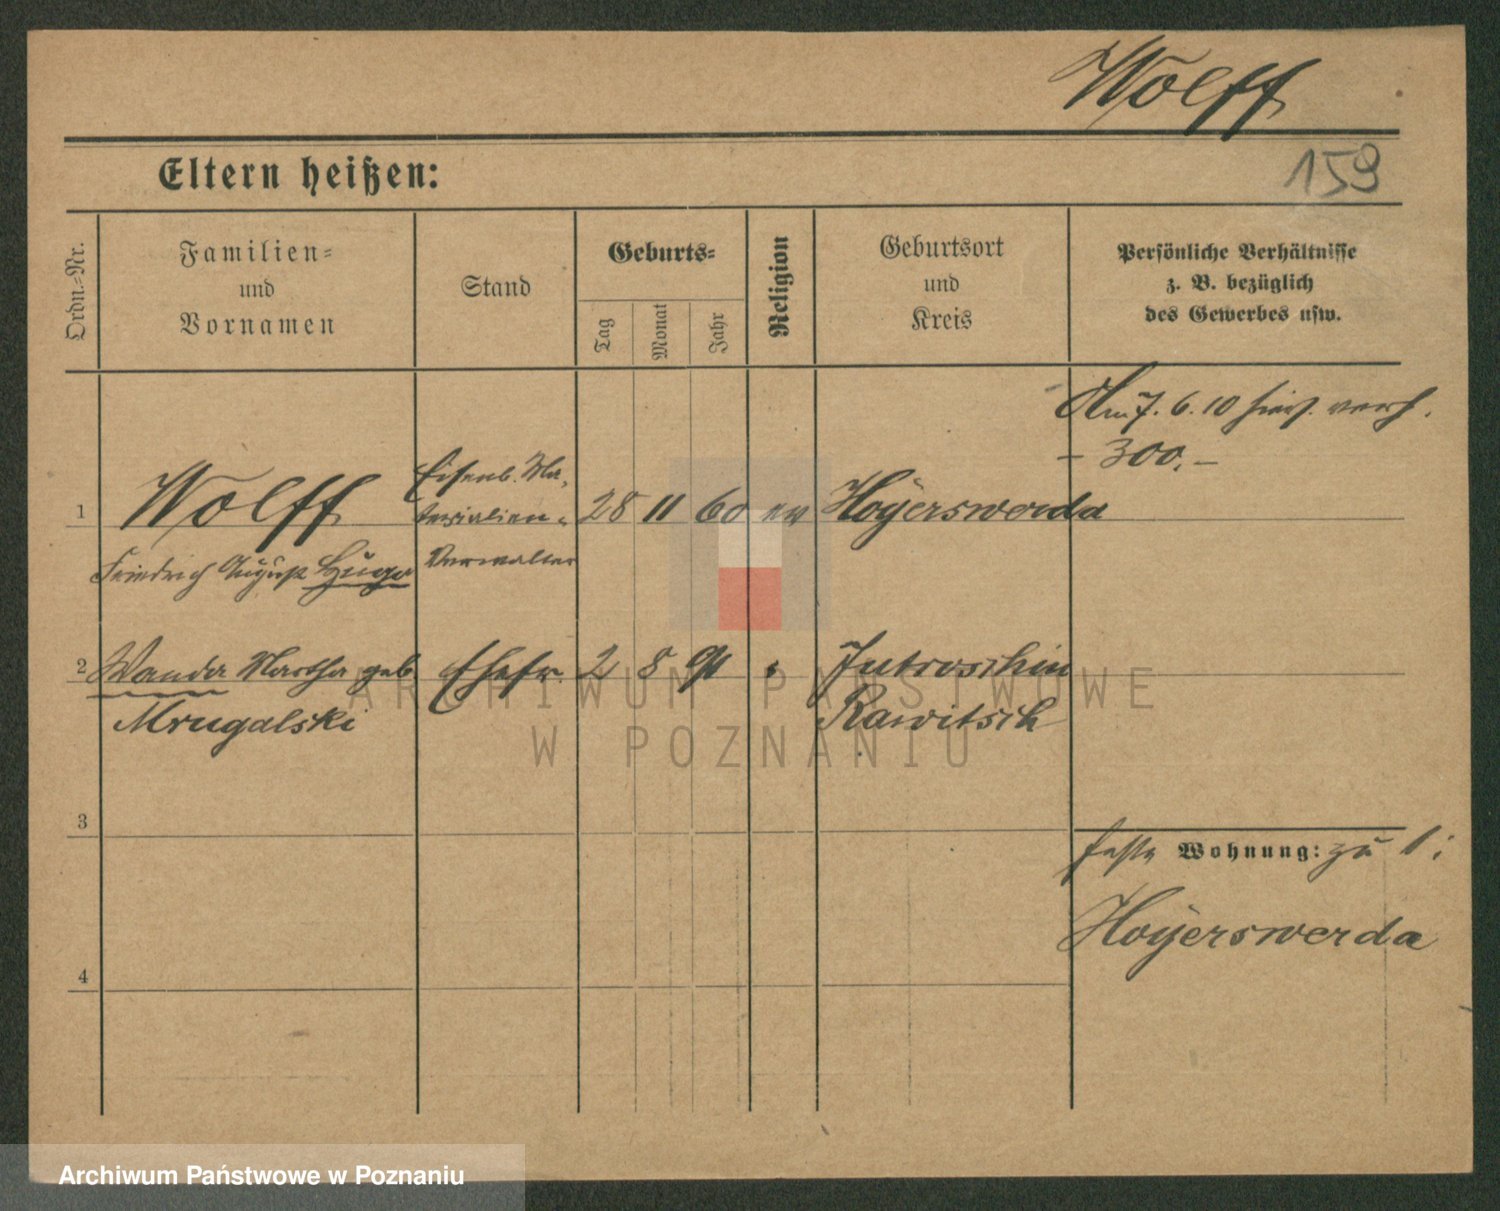 Wolff
159
Eltern heißen:
Ordn.-Nr.
Familien-
und
Vornamen
Stand
Geburts-
Tag
Monat
Jahr
Religion
Geburtsort
und
Kreis
Persönliche Verhältnisse
z. B. bezüglich
des Gewerbes usw.
Am 7. 6. 10 hies. verh.
- 300.-
1
Wolff
Friedrich August Hugo
Eisenb. Ma-
terialien-
Verwalter
28 11 60 ev
Hoyerswerda
2
Wanda Martha geb
Mrugalski
Ehefr.
2 8 91
Jutroschin
Rawitsch
3
feste Wohnung: zu 1:
Hoyerswerda
4
ARCHIWUM PAŃSTWOWE
W POZNANIU
Archiwum Państwowe w Poznaniu